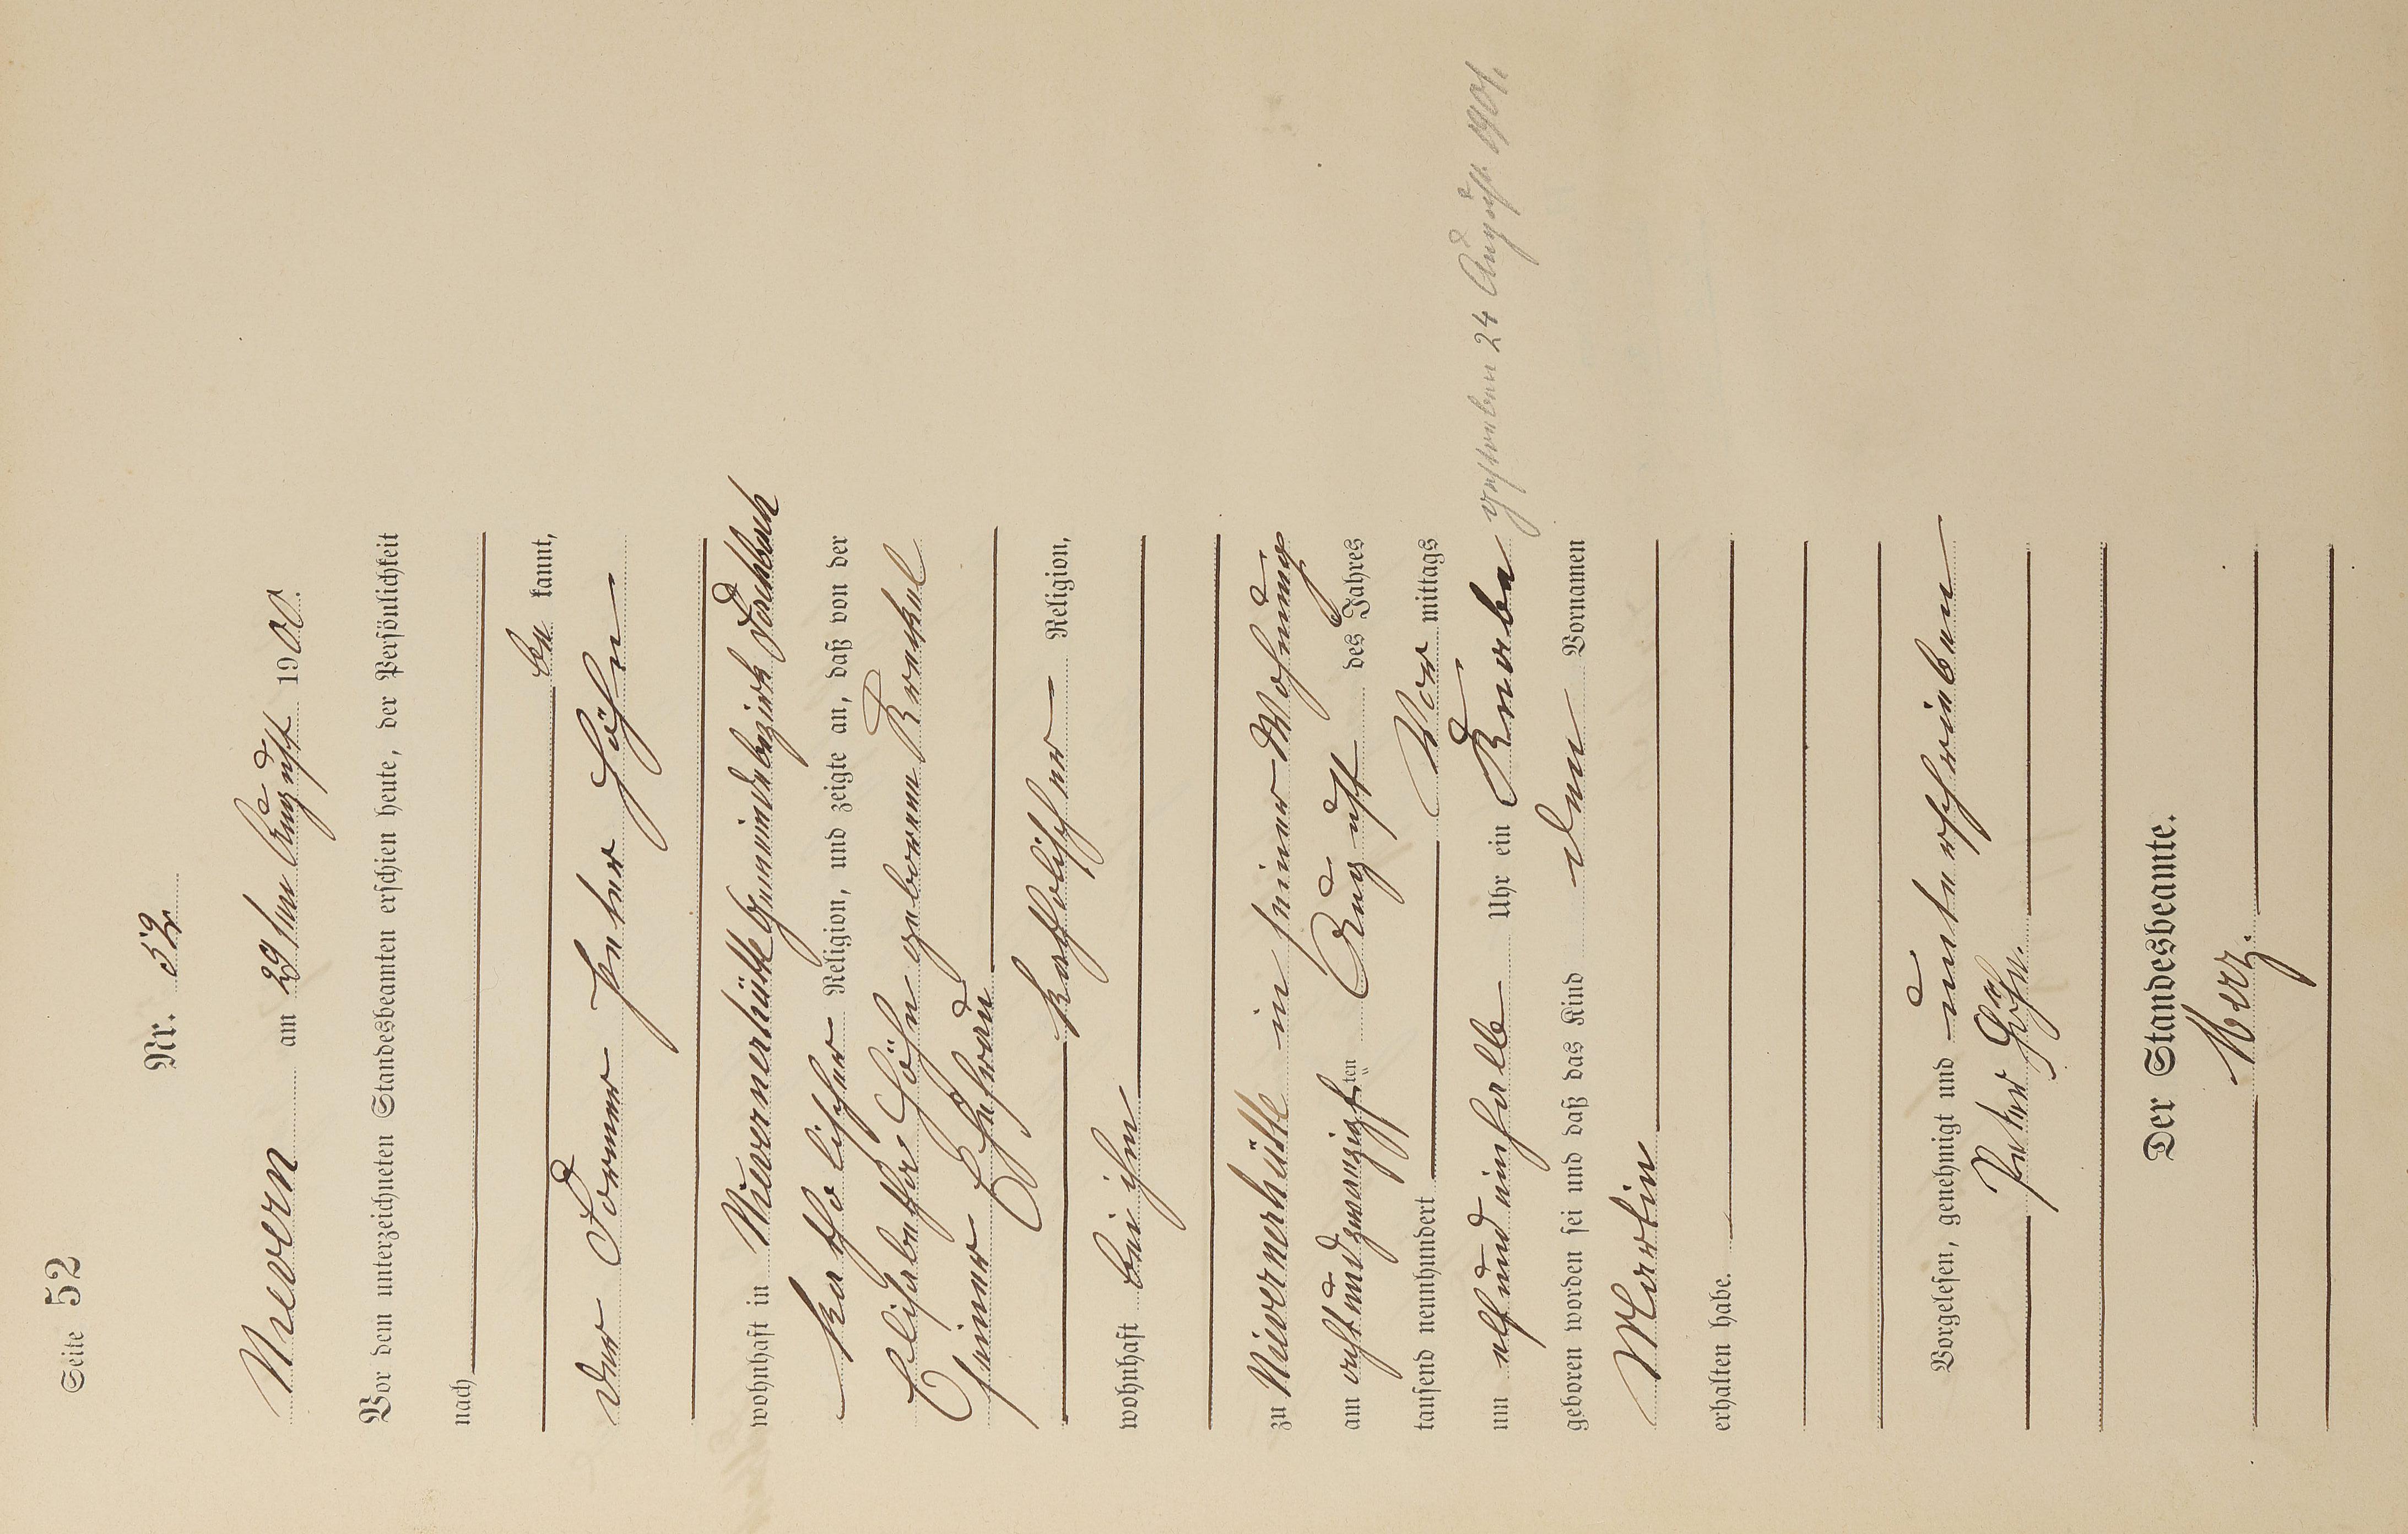 Seite 52
Nr. 52
Nievern am 29ten August 1900.
Vor dem unterzeichneten Standesbeamten erschien heute, der Persönlichkeit
nach
be kannt,
der Former Peter Höhn
wohnhaft in Nievernerhütte Gemeindebezirk Fachbach
katholischer Religion, und zeigte an, daß von der
Elisabetha Höhn geborenen Krekel
seiner Ehefrau
katholischer Religion,
wohnhaft bei ihm
zu Nievernerhütte in seiner Wohnung
am achtundzwanzigsten August des Jahres
tausend neunhundert Vor mittags
um elfundeinhalb Uhr ein Knabe gestorben 24 August 1901.
geboren worden sei und daß das Kind den Vornamen
Martin
erhalten habe.
Vorgelesen, genehmigt und unterschrieben
Peter Höhn.
Der Standesbeamte.
Merz.